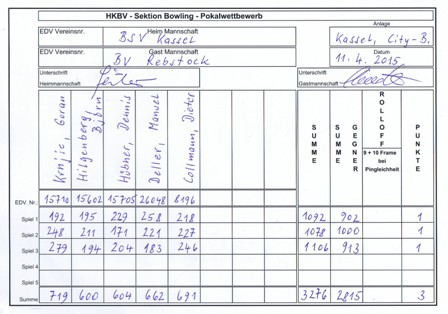 HKBV - Sektion Bowling - Pokalwettbewerb
EDV Vereinsnr. Heim Mannschaft Anlage
BSV Kassel Kassel, City-B.
EDV Vereinsnr. Gast Mannschaft Datum
BV Rebstock 11.4.2015
Unterschrift Unterschrift
Heimmannschaft Gastmannschaft
Krnjic, Goran
Hilgenberg, Björn
Hübner, Dennis
Deller, Manuel
Collmann, Dieter
SUMME
SUMME GEGNER
ROLLOFF
9 + 10 Frame
bei
Pingleichheit
PUNKTE
EDV. Nr. 15710 15602 15705 26048 8196
Spiel 1 192 195 229 258 218 1092 902 1
Spiel 2 248 211 171 221 227 1078 1000 1
Spiel 3 279 194 204 183 246 1106 913 1
Spiel 4
Spiel 5
Summe 719 600 604 662 691 3276 2815 3